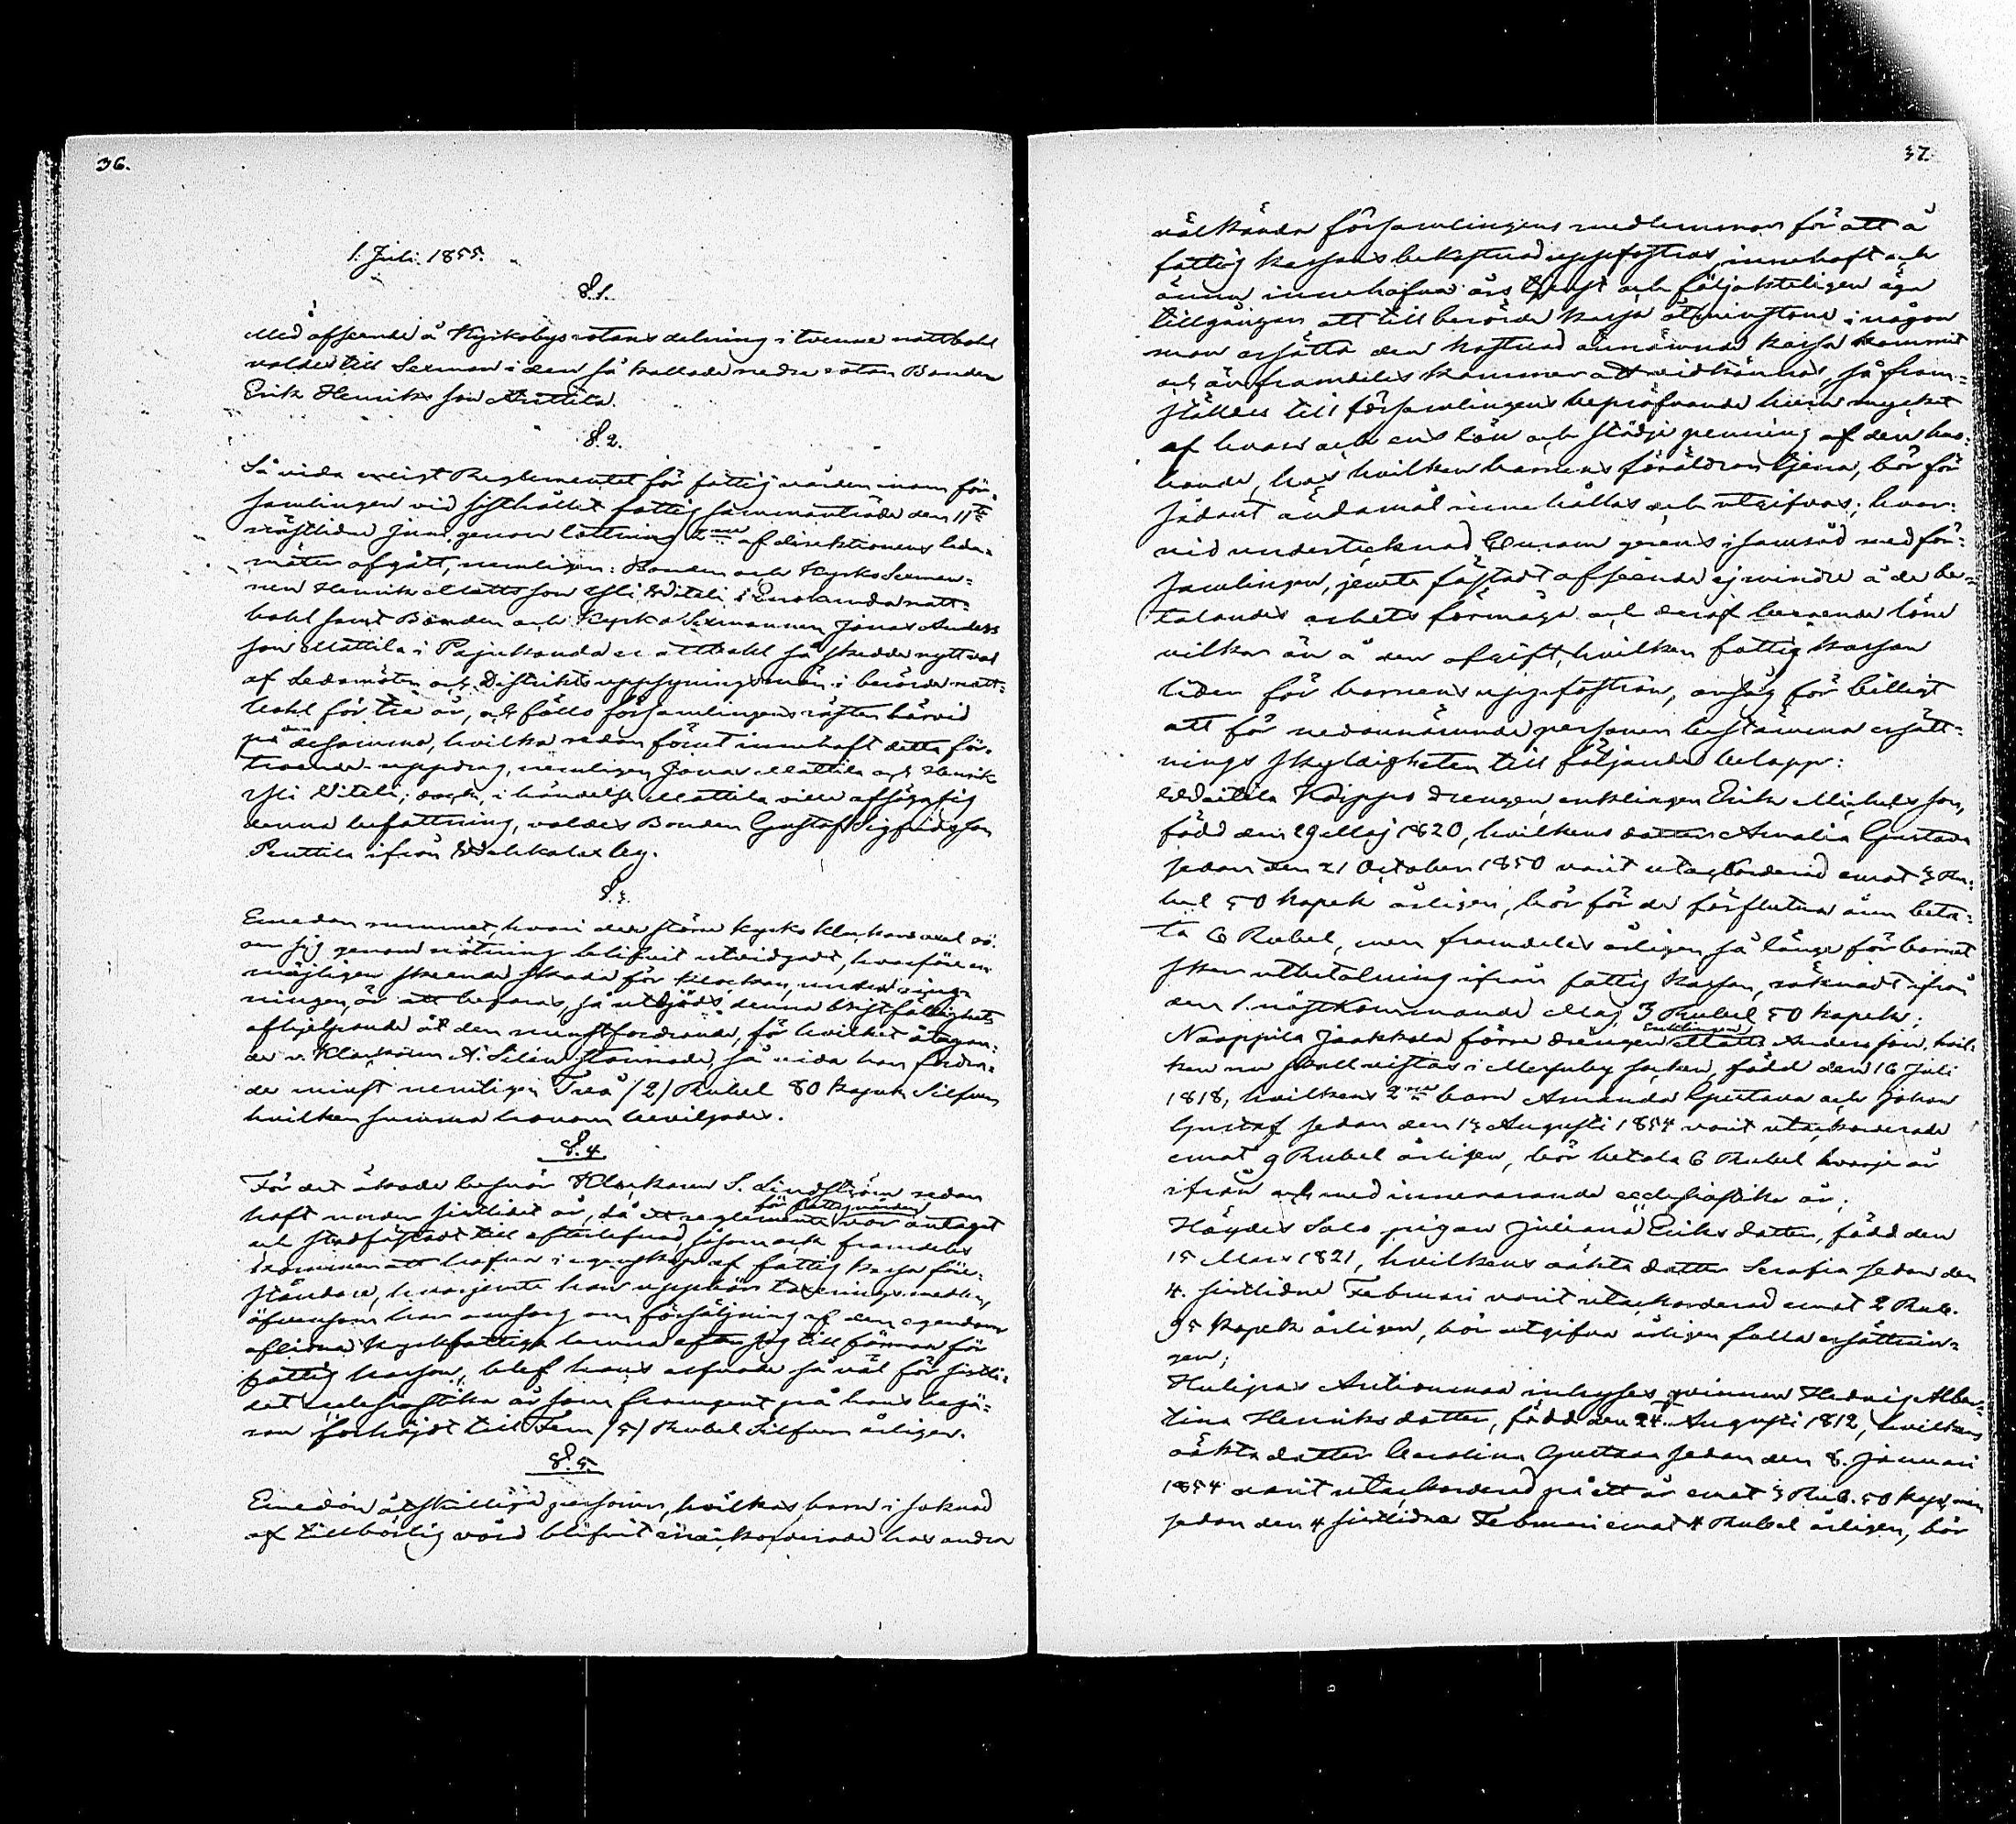 36.
1. Juli. 1855.
§.1.
Med afseende å Kyrkobys rotans delning i tvenne nattbohl
valdes till Sexman i den så kallade nedre rotan Bonden
Erik Henriksson Anttila.
§.2.
Så vida enligt Reglementet för fattigvården inom för-
samlingen vid sisthållet fattig sammanträde den 11te
nästlidne Juni, genom lottning 2ne af direktionens leda-
möter afgått, nemligen: Bonden och Kyrko Sexman-
nen Henrik Mattsson Yli Witali i natt-
bohl samt Bonden och Kyrko Sexmannen Jonas Anders
son Mattila i Pajukanda nattbohl så skedde nytt val
af Ledamöter och Distrikts uppsyningsmän i berörde natt-
bohl för tre år, och föllo församlingens röster härvid
på desamma, hvilka redan förut innehaft detta för-
troende uppdrag, nemligen Jonas Mattila och Henrik
Yli Witali; dock, i händelse Mattila ville afsäga sig
denna befattning, valdes Bonden Gustaf Sigfridsson
Penttila ifrån by.
§.3.
Emedan rummet, hvari den större kyrko klockans axel rö-
rer sig genom nötning blifvit utvidgadt, hvarföre en
möjligen skeende skada för klockan, under ringe-
ningen, är att befaras, så utbjöds denna bristfällighets
afhjelpande åt den minstfordrande, för hvilket åtagan-
de v. Klockaren A. Silén stannade, så vida han fordra-
de minst nemligen Två /2/ Rubel 80 kopek Silfver
hvilken summa honom beviljades.
§.4
För det åkade besvär Klockaren S. Lindström redan
haft under sistlidet år, då ett reglemente för fattigvården var antaget
och stadfästadt till efterlefnad, såsom ock framdeles
kommer att hafva i egenskap af fattig kassa före-
ståndare, hvarjemte han uppbär taxeringsmedlen,
äfvensom har omsorg om försäljning af den egendom
aflidna kyrkfattiga lemna efter sig till förmon för
fattig kassan, blef hans arfvode så väl för sistli-
det ecclesiastika år som framgent på hans begä-
ran förhöjdt till Fem /5/ Rubel Silfver årligen.
§.5.
Emedan åtskilliga personer, hvilkas barn i saknad
af tillbörlig vård blifvit inackorderade hos andra
37.
välkända församlingens medlemmar för att å
fattig kassans bekostnad uppfostras, innehaft och
ännu innehafva års tjenst och följakteligen äga
tillgången att till berörde kassa åtminstone i någon
mon ersätta den kostnad ännämnd kassa kommit
och än framdeles kommer att vidkännas, så fram-
ställdes till församlingens bepröfvande huru mycket
af hvars och ens lön och städje penning af den hus-
bonde, hos hvilken barnens föräldrar tjena, bör för
sådant ändamål innehållas och utgifvas; hvar-
vid undertecknad Curam gerens i samråd med för-
samlingen, jemte fästadt afseende ej mindre å de be-
talandes arbets förmåga och deraf beroende löne
vilkor än å den afgift, hvilken fattig kassan
lider för barnens uppfostran, ansåg för billigt
att för nedannämnde personer bestämma ersätt-
nings skyldigheten till följande belopp:
Koippo drengen enklingen Erik Michelsson,
född den 29 Maj 1820, hvilkens dotter Amalia Gustava
sedan den 21 October 1850 varit utackorderad emot 3 Ru-
bel 50 kopek årligen, bör för de förflutna åren beta-
la 6 Rubel, men framdeles årligen, så länge för barnet
sker utbetalning ifrån fattig kassan, räknadt ifrån
den 1. nästkommande Maj 3 Rubel 50 kopek;
Naappila Jaakkola förre drengen Enklingen Matts Andersson, hvil-
ken nu skall vistas i Messuby socken, född den 16 Juli
1818, hvilkens 2ne barn Amanda Gustava och Johan
Gustaf sedan den 13 Augusti 1854 varit utackorderade
emot 9 Rubel årligen, bör betala 6 Rubel hvarje år
ifrån och med innevarande ecclesiastika år;
Höydes Salo pigan Juliana Eriksdotter, född den
15 Mars 1821, hvilkens oäkta dotter Serafia sedan den
4. sistlidne Februari varit utackorderad emot 2 Rub.
95 kopek årligen, bör utgifva årligen fulla ersättnin-
gen;
Huligas Antionmaa inhyses qvinnan Hedvig Alber-
tina Henriksdotter, född den 24. Augusti 1812, hvilkens
oäkta dotter Carolina Gustava sedan den 8. Januari
1854 varit utackorderad på ett år emot 3 Rub. 50 kop, men
sedan den 4 sistlidne Februari emot 4 Rubel årligen, bör